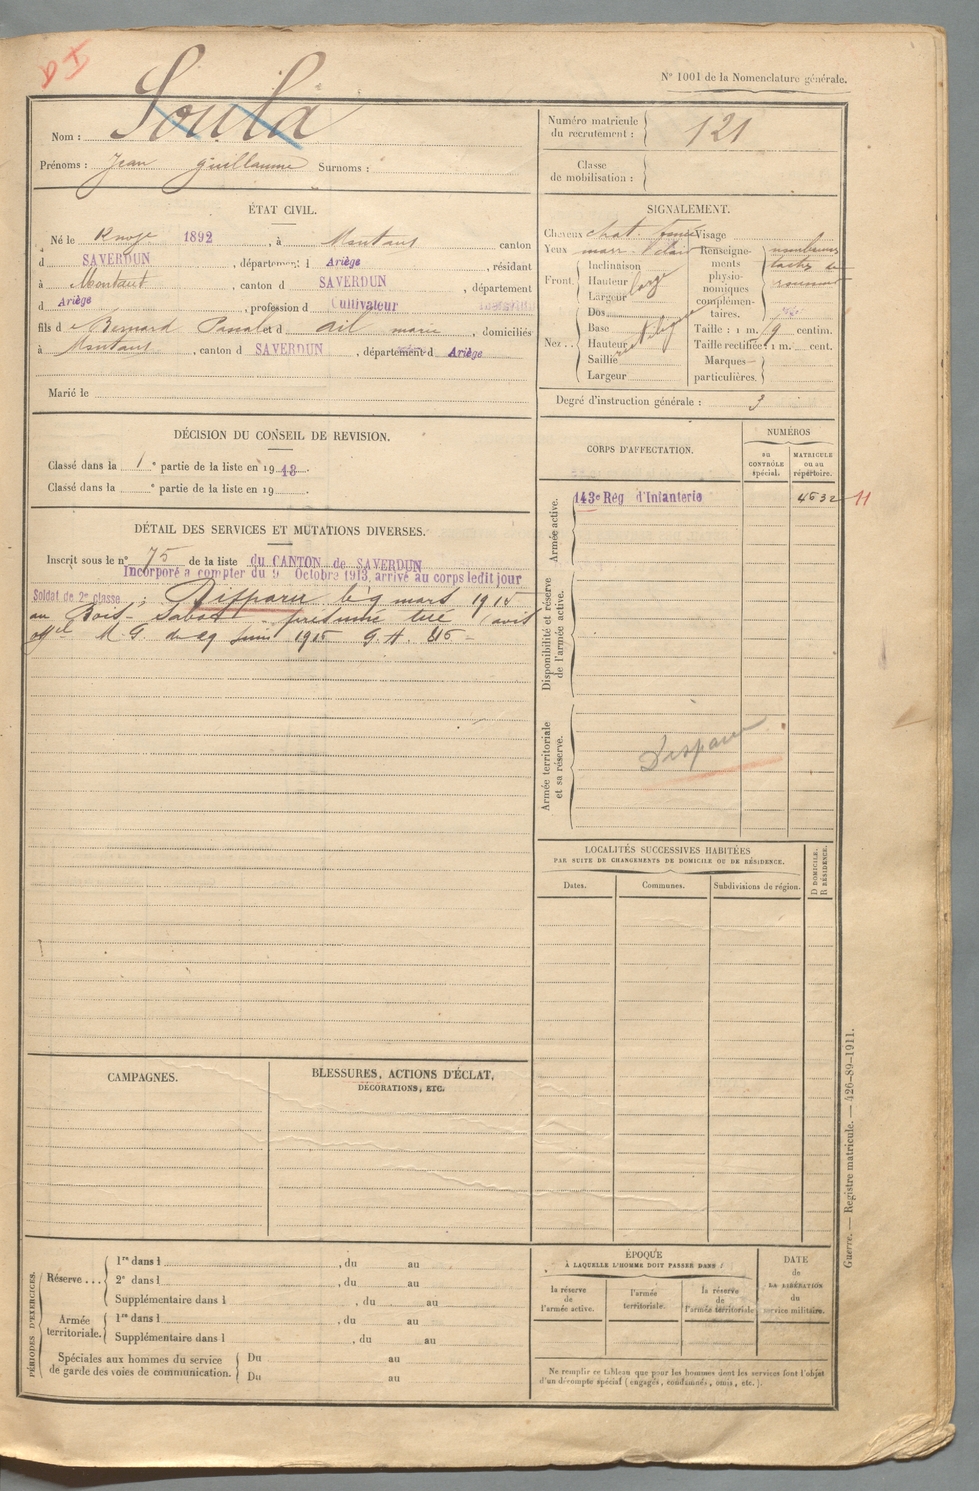 DI
N° 1001 de la Nomenclature générale.
Nom : Soula
Prénoms : Jean Guillaume Surnoms :
Numéro matricule du recrutement : 121
Classe de mobilisation :
ÉTAT CIVIL.
Né le 1892, à Montaut canton
d SAVERDUN, département d Ariège, résidant
à Montaut, canton d SAVERDUN, département
d Ariège, profession d Cultivateur
fils de Bernard Pascal et d Ail marie, domiciliés
à Montaut, canton d SAVERDUN, département d Ariège
Marié le
SIGNALEMENT.
Cheveux chat. foncé Visage
Yeux marr. clair
Front. Inclinaison
Hauteur
Largeur
large
Nez.. Dos
Base
Hauteur
Saillie
Largeur
rectiligne
Renseignements physionomiques complémentaires. nombreuses taches de rousseur
Taille : 1 m. centim.
Taille rectifiée : 1 m. cent.
Marques particulières.
Degré d'instruction générale : 3
DÉCISION DU CONSEIL DE REVISION.
Classé dans la 1e partie de la liste en 1913.
Classé dans la e partie de la liste en 19 .
DÉTAIL DES SERVICES ET MUTATIONS DIVERSES.
Inscrit sous le n° 75 de la liste du CANTON de SAVERDUN
Incorporé a compter du 9 Octobre 1913, arrivé au corps ledit jour
Soldat de 2e classe ; Disparu le 9 mars 1915
au Bois-Sabot - présumé tué (avis
offel M.G. du 29 Juin 1915 G.A. 45 -
CORPS D'AFFECTATION.
NUMÉROS
au CONTRÔLE spécial.
MATRICULE ou au répertoire.
Armée active.
143e Rég d'Infanterie 4632 11
Disponibilité et réserve de l'armée active.
Armée territoriale et sa réserve.
Disparu
LOCALITÉS SUCCESSIVES HABITÉES
PAR SUITE DE CHANGEMENTS DE DOMICILE OU DE RÉSIDENCE.
Dates. Communes. Subdivisions de région. D DOMICILE. R RÉSIDENCE.
CAMPAGNES.
BLESSURES, ACTIONS D'ÉCLAT,
DÉCORATIONS, ETC.
PÉRIODES D'EXERCICES.
Réserve... 1re dans l , du au
2e dans l , du au
Supplémentaire dans l , du au
Armée territoriale. 1re dans l , du au
Supplémentaire dans l , du au
Spéciales aux hommes du service de garde des voies de communication. Du au
Du au
ÉPOQUE
À LAQUELLE L'HOMME DOIT PASSER DANS :
la réserve de l'armée active.
l'armée territoriale.
la réserve de l'armée territoriale
DATE de LA LIBÉRATION du service militaire.
Ne remplir ce tableau que pour les hommes dont les services font l'objet
d'un décompte spécial (engagés, condamnés, omis, etc.).
Guerre. — Registre matricule. — 426-89-1911.